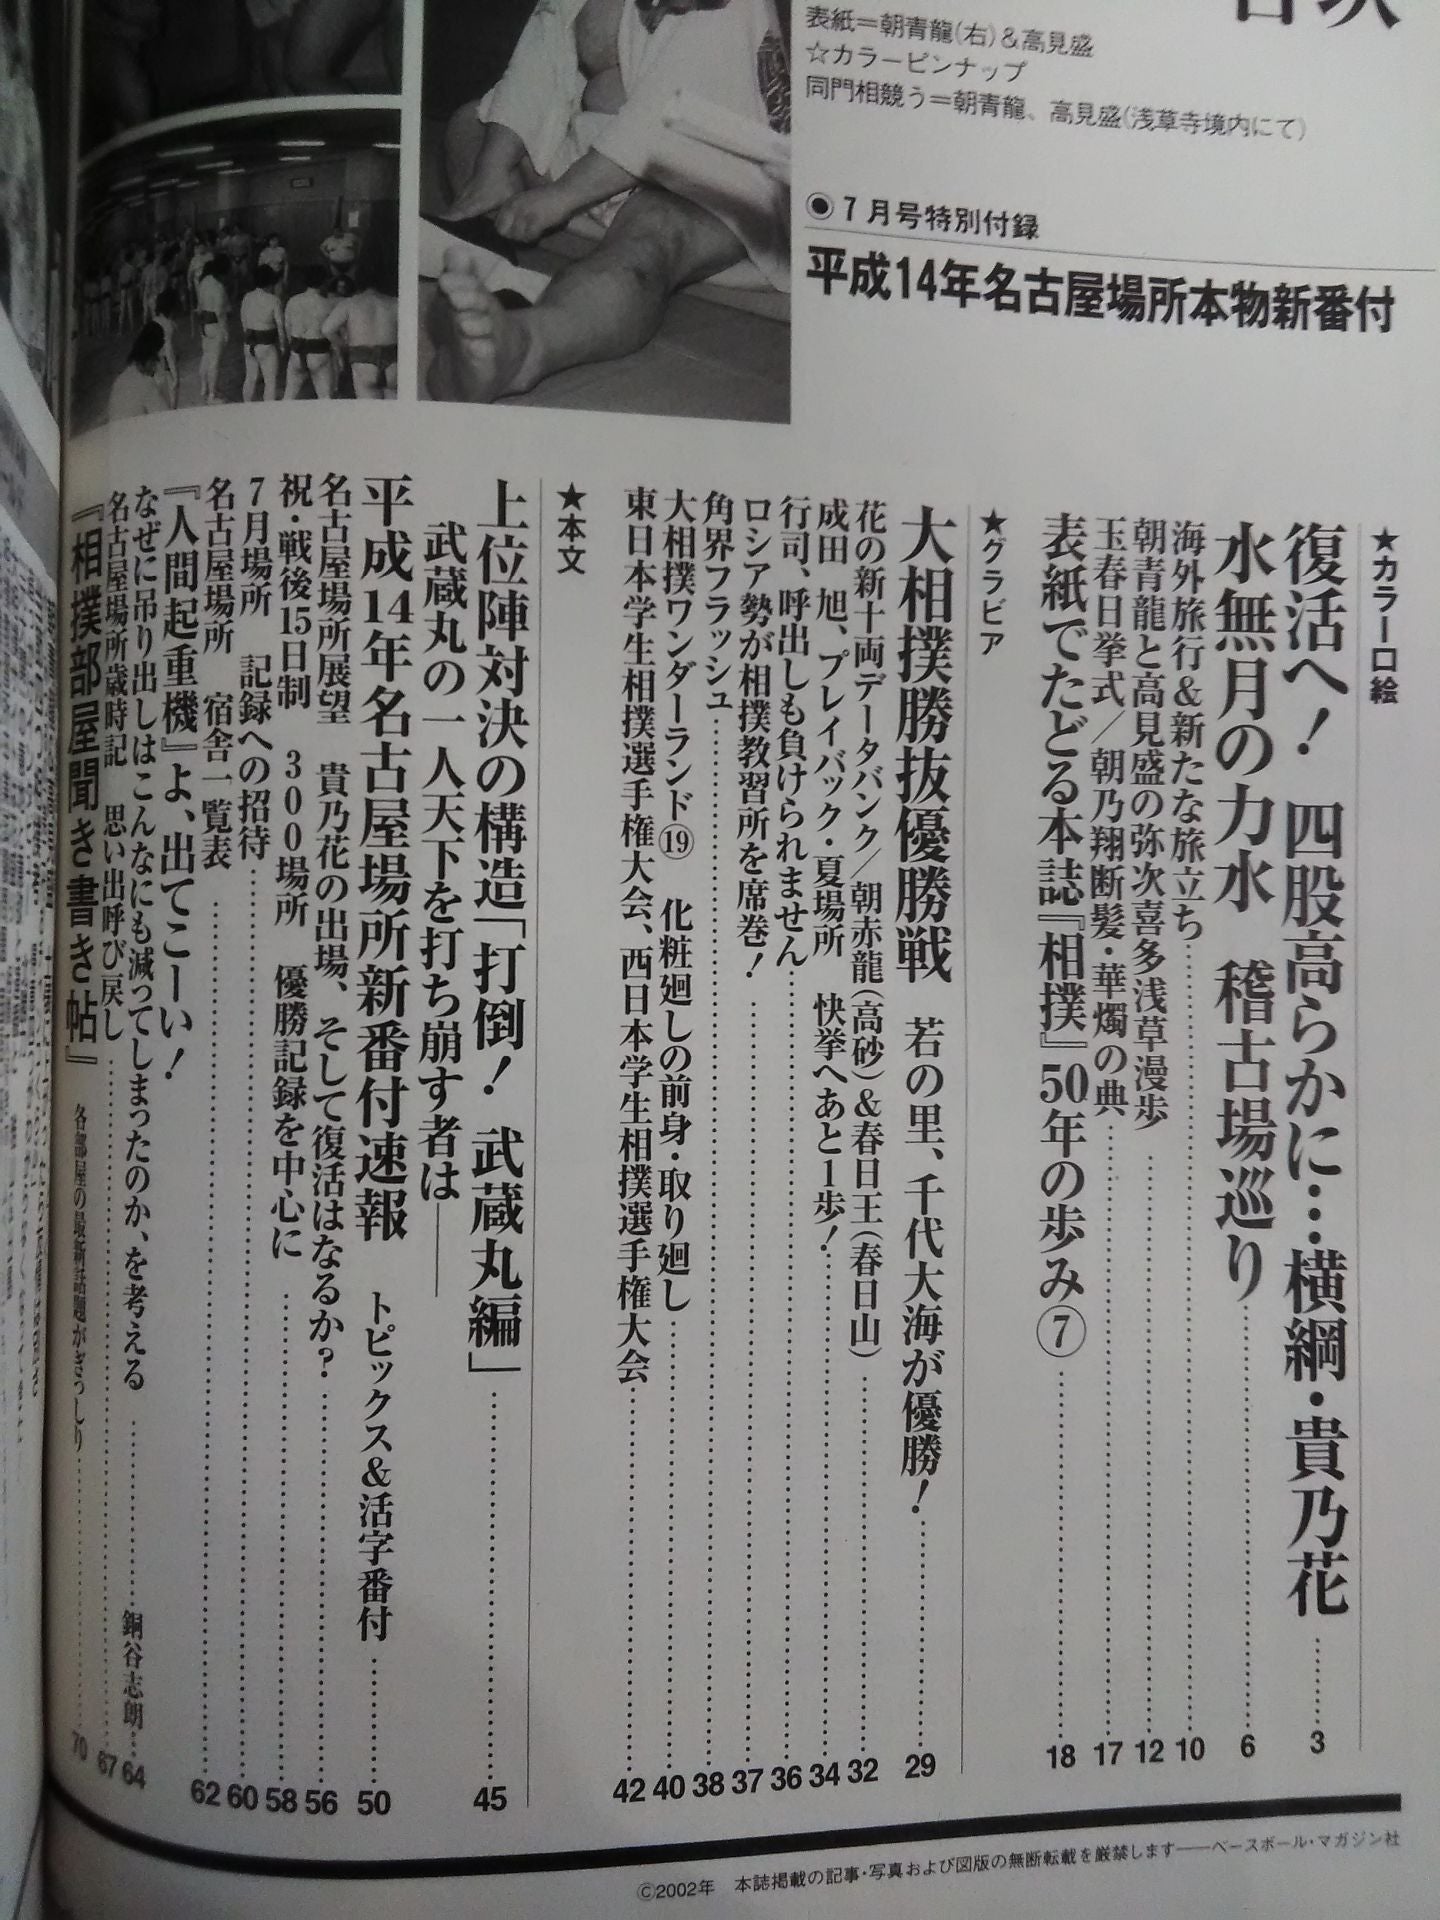 表紙＝朝青龍(右)＆高見盛
☆カラーピンナップ
同門相競う＝朝青龍、高見盛(浅草寺境内にて)
◉7月号特別付録
平成14年名古屋場所本物新番付
★カラー口絵
復活へ！ 四股高らかに…横綱・貴乃花 3
水無月の力水 稽古場巡り 6
海外旅行＆新たな旅立ち 10
朝青龍と高見盛の弥次喜多浅草漫歩 12
玉春日挙式／朝乃翔断髪・華燭の典 17
表紙でたどる本誌『相撲』50年の歩み⑦ 18
★グラビア
大相撲勝抜優勝戦 若の里、千代大海が優勝！ 29
花の新十両データバンク／朝赤龍(高砂)＆春日王(春日山) 32
成田 旭、プレイバック・夏場所 快挙へあと1歩！ 34
行司、呼出しも負けられません 36
ロシア勢が相撲教習所を席巻！ 37
角界フラッシュ 38
大相撲ワンダーランド⑲ 化粧廻しの前身・取り廻し 40
東日本学生相撲選手権大会、西日本学生相撲選手権大会 42
★本文
上位陣対決の構造「打倒！ 武蔵丸編」 45
武蔵丸の一人天下を打ち崩す者は——
平成14年名古屋場所新番付速報 トピックス＆活字番付 50
名古屋場所展望 貴乃花の出場、そして復活はなるか？ 56
祝・戦後15日制 300場所 優勝記録を中心に 58
7月場所 記録への招待 60
名古屋場所 宿舎一覧表 62
『人間起重機』よ、出てこーい！
なぜに吊り出しはこんなにも減ってしまったのか、を考える 銅谷志朗 64
名古屋場所歳時記 思い出呼び戻し 67
『相撲部屋聞き書き帖』 各部屋の最新話題がぎっしり 70
©2002年 本誌掲載の記事・写真および図版の無断転載を厳禁します——ベースボール・マガジン社